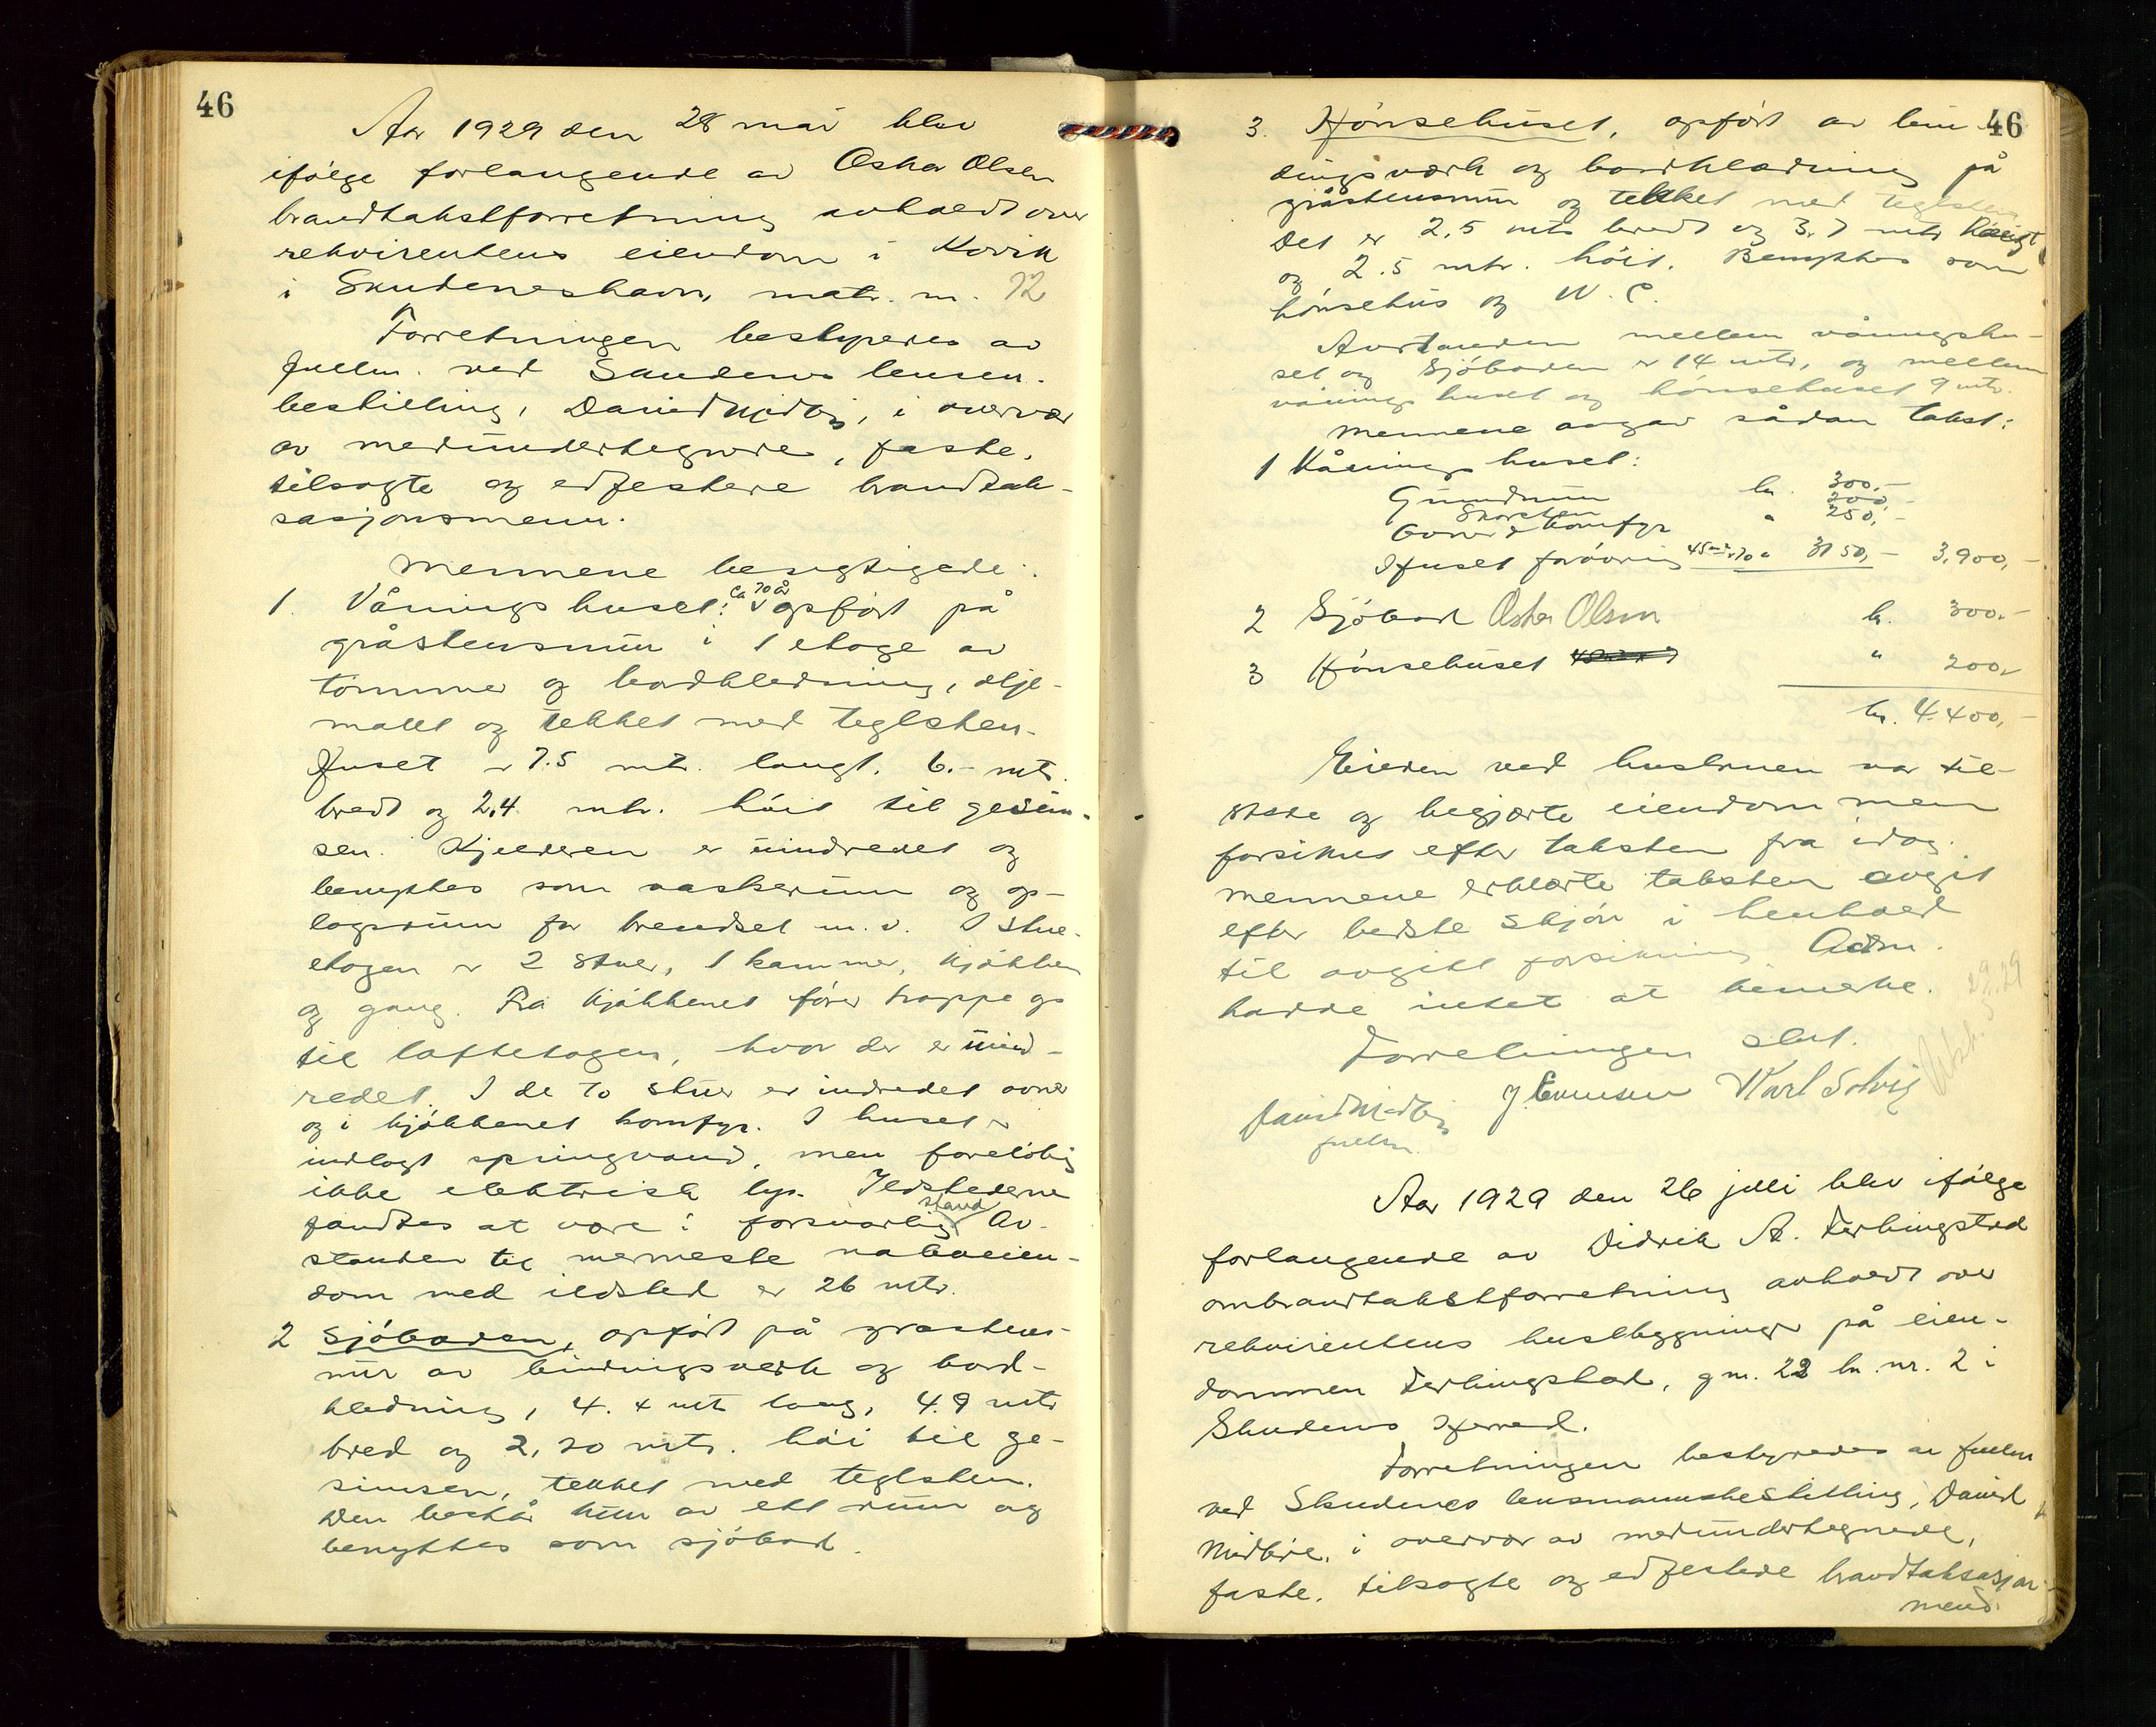 46
Aar 1929 den 28 mai blev
ifølge forlangende av Oskar Olsen
brandtakstforretning avholdt over
rekvirentens eiendom i Korvik
i Skudeneshavn, matr. nr. 72
Forretningen bestyredes av
fullm. ved Skudenes lensm.
bestilling, David Midbøe, i overvær
av medundertegnede, faste,
tilsagte og edfestede brandtak-
sasjonsmenn.
Mennene besigtigede:
1. Våningshuset: ca 70 år opført på
gråstensmur i 1 etage av
tømmer og bordklædning, olje-
malt og tekket med teglsten.
Huset er 7.5 mtr. langt, 6.- mtr.
bredt og 2,4 mtr. høit til gesim-
sen. Kjelderen er uindredet og
benyttes som vaskerum og op-
lagsrum for brendsel m.v. I stue-
etagen er 2 stuer, 1 kammer, kjøkken
og gang. Fra kjøkkenet fører trappe op
til loftetagen, hvor der er uind-
redet. I de to stuer er indredet ovner
og i kjøkkenet komfyr. I huset er
indlagt springvand, men foreløbig
ikke elektrisk lys. Ildstederne
fandtes at være i forsvarlig stand. Av-
standen til nermeste naboeien-
dom med ildsted er 26 mtr.
2 Sjøboden, opført på gråstens-
mur av bindingsverk og bord-
kledning, 4. 4 mtr lang, 4.9 mtr
bred og 2,20 mtr. høi til ge-
simsen, tekket med teglsten.
Den består kun av ett rum og
benyttes som sjøbod.
46
3. Hønsehuset, opført av bin-
dingsverk og bordklædning på
gråstensmur og tekket med teglsten
Det er 2.5 mtr bredt og 3.7 mtr langt
og 2.5 mtr. høit. Benyttes som
hønsehus og W.C.
Avstanden mellem våningshu-
set og sjøboden er 14 mtr, og mellem
våningshuset og hønsehuset 9 mtr.
Mennene avgav sådan takst:
1 Våningshuset:
Grundmur kr. 300,-
Skorsten 200,-
Ovner & komfyr " 250,-
Huset forøvrig 45 m² x 70 " 3150,- 3,900,-
2 Sjøbod Oskar Olsen kr. 300.-
3 Hønsehuset " 200,-
kr. 4.400,-
Eieren ved hustruen var til-
stede og begjærte eiendommen
forsikret efter taksten fra idag.
Mennene erklærte taksten avgit
efter bedste skjøn i henhold
til avgitt forsikring. Adm.
hadde intet at bemerke.
Forretningen slut.
David Midbøe J. Evensen Karl Solvig
fullm.
Aar 1929 den 26 juli blev ifølge
forlangende av Didrik A. Ferkingstad
ombrandtakstforretning avholdt over
rekvirentens husbygninger på eien-
dommen Ferkingstad, g nr. 22 br. nr. 2 i
Skudenes Herred.
Forretningen bestyredes av fullm
ved Skudenes lensmannsbestilling, David
Midbøe, i overvær av medundertegnede,
faste, tilsagte og edfestede brandtaksasjons-
menn.